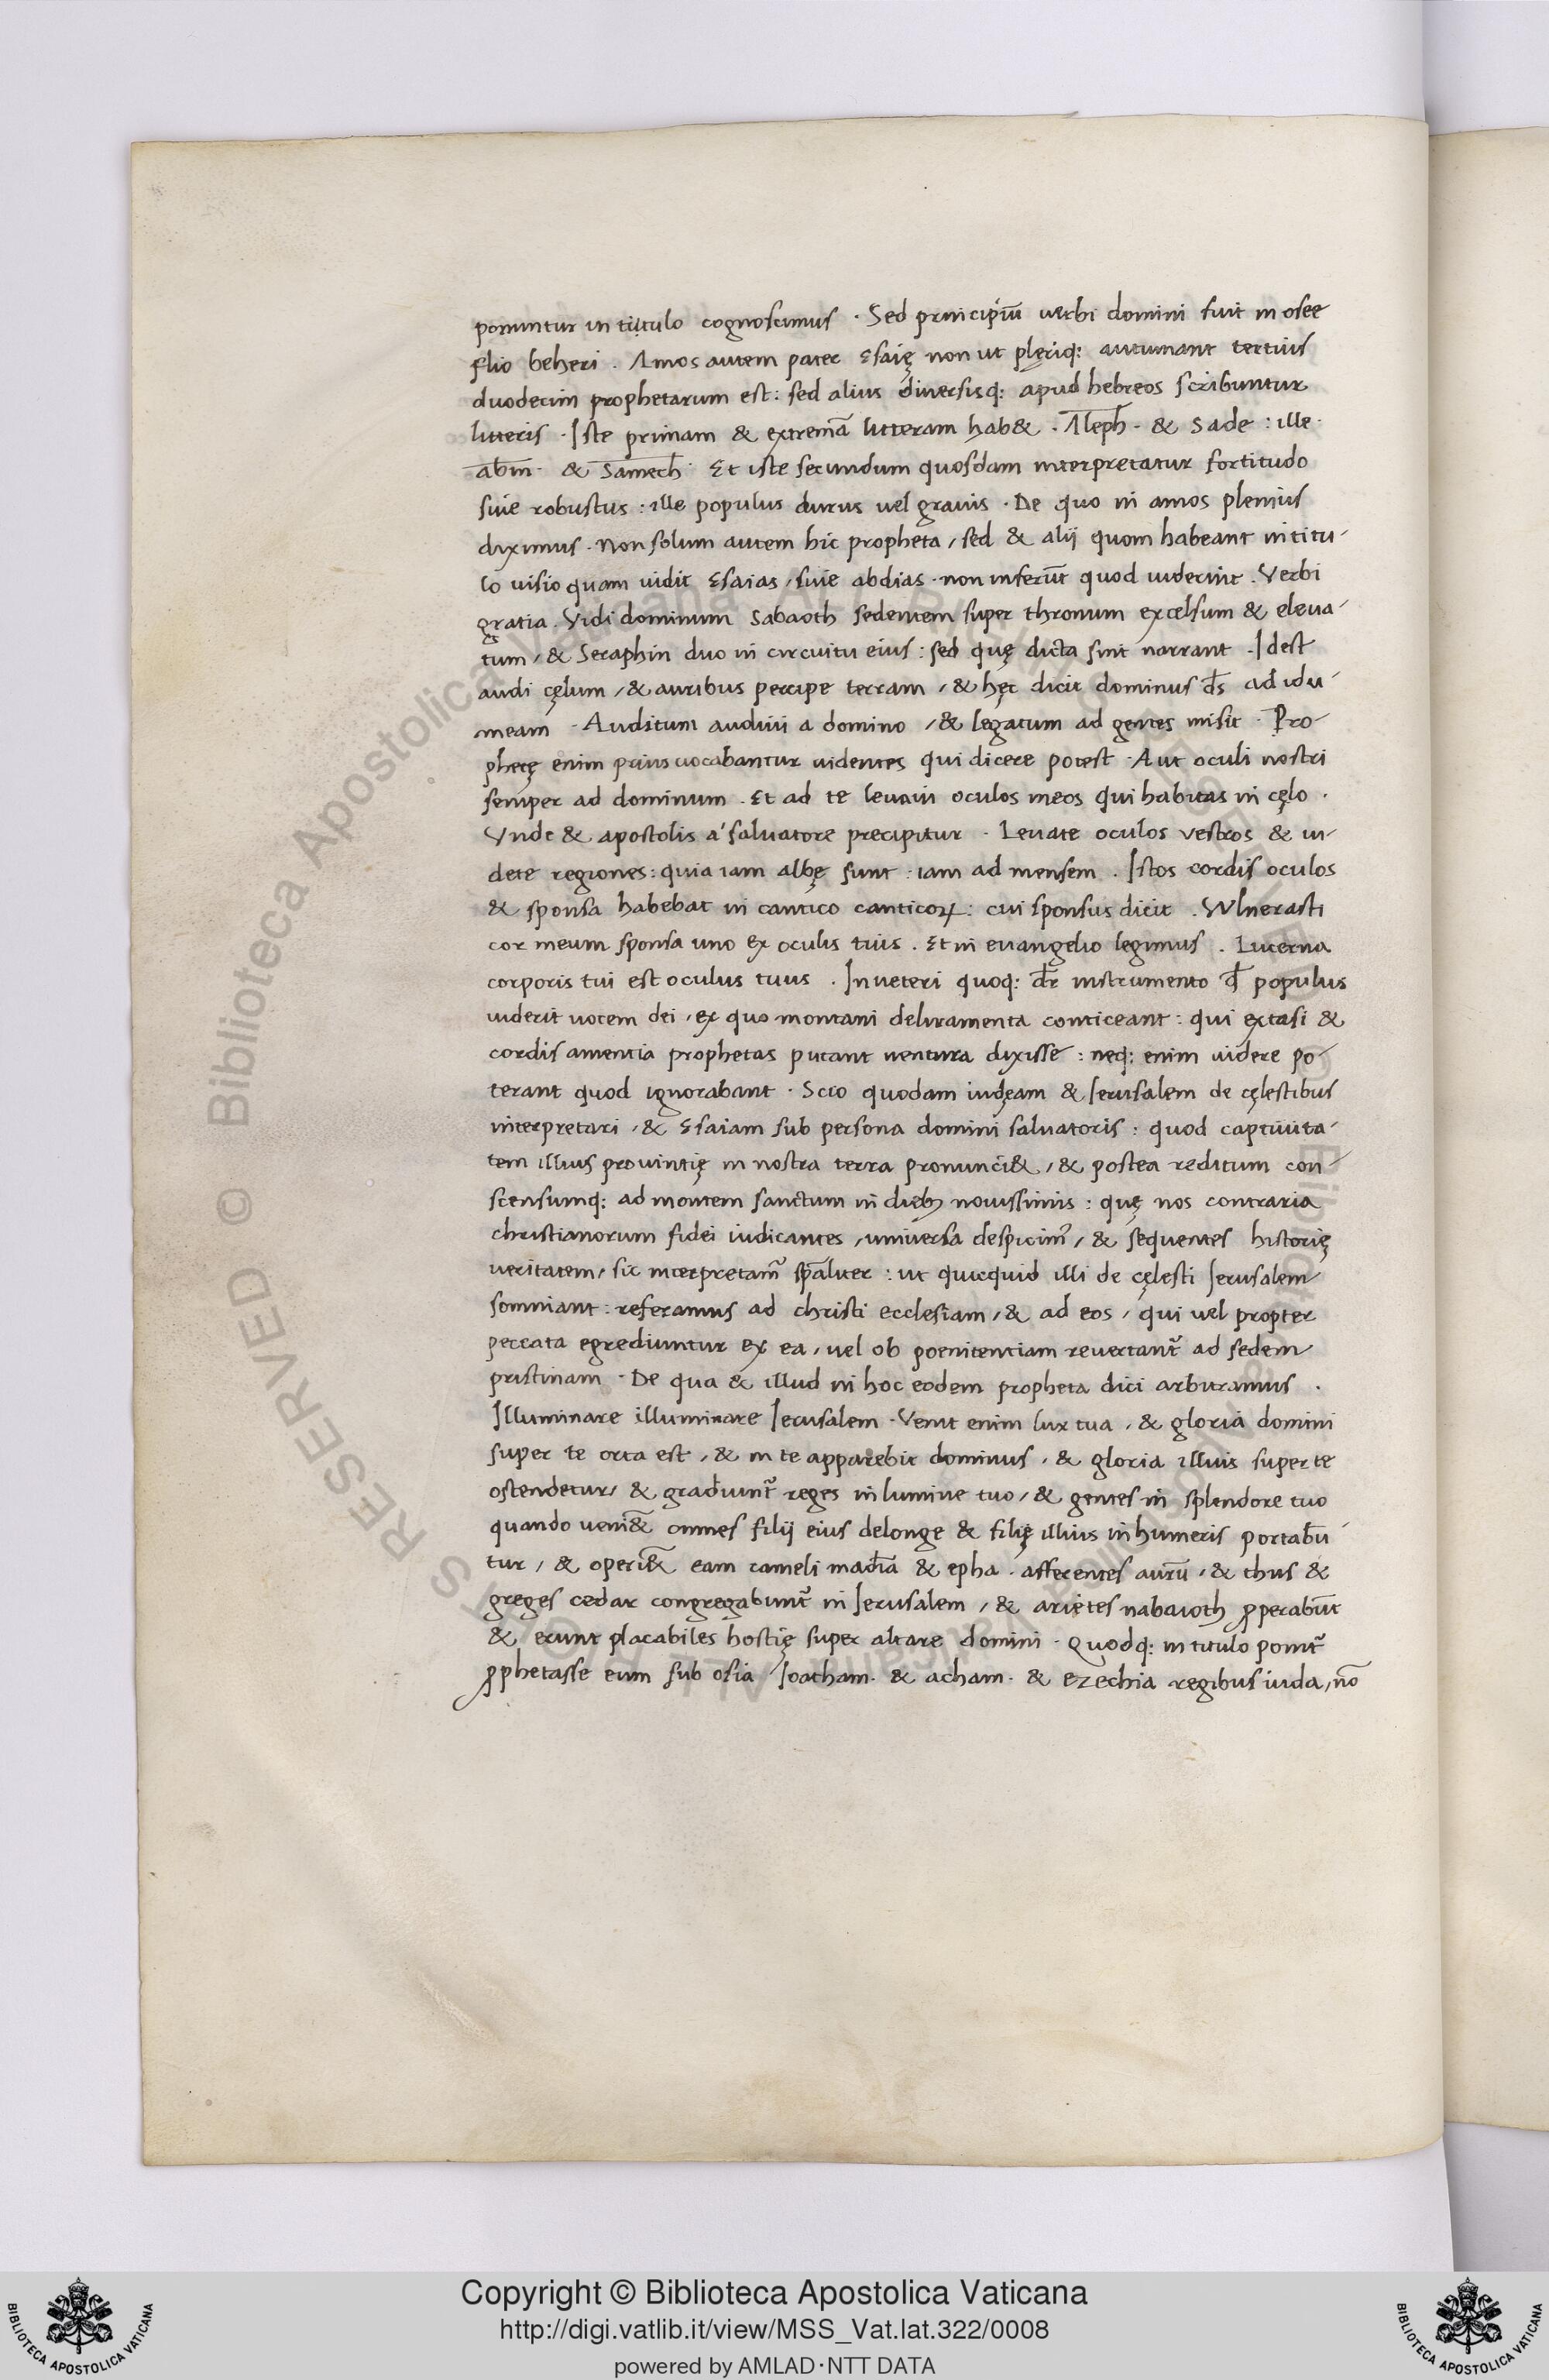 ponuntur in titulo cognoscimus . Sed principiū uerbi domini fuit in osee
filio beheri . Amos autem pater Esaię non ut plęriq: autumant tertius
duodecim prophetarum est : sed alius diuersisq: apud hebreos scribuntur
litteris . Iste primam & extremā litteram hab& . Aleph . & Sade : ille .
abin . & Samech . Et iste secundum quosdam interpretatur fortitudo
siue robustus : ille populus durus uel grauis . De quo in amos plenius
diximus . Non solum autem hic propheta / sed & alij quom habeant in titu-
lo uisio quam uidit Esaias / siue abdias . non inferūt quod uiderint . Verbi
gratia . Vidi dominum Sabaoth sedentem super thronum excelsum & eleua-
tum / & Seraphin duo in circuitu eius : sed quę dicta sint narrant . Idest
audi cęlum / & auribus percipe terram / & hęc dicit dominus d̄s ad idu-
meam . Auditum audiui a domino / & legatum ad gentes misit . Pro-
phetę enim prius uocabantur uidentes qui dicere potest . Aut oculi nostri
semper ad dominum . Et ad te leuaui oculos meos qui habitas in cęlo .
Vnde & apostolis a' saluatore precipitur . Leuate oculos vestros & ui-
dete regiones : quia iam albę sunt . iam ad mensem . Istos cordis oculos
& sponsa habebat in cantico canticoꝝ : cui sponsus dicit . Vulnerasti
cor meum sponsa uno ex oculis tuis . Et in euangelio legimus . Lucerna
corporis tui est oculus tuus . In ueteri quoq: dr̄ instrumento qđ populus
uiderit uocem dei / ex quo montani deliramenta conticeant : qui extasi &
cordis amentia prophetas putant uentura dixisse : neq: enim uidere po-
terant quod ignorabant . Scio quodam iudęam & Ierusalem de cęlestibus
interpretari / & Esaiam sub persona domini saluatoris : quod captiuita-
tem illius prouintię in nostra terra pronunci& / & postea reditum con-
scensumq: ad montem sanctum in dieb; nouissimis : quę nos contraria
christianorum fidei iudicantes / uniuersa despicim᾽ / & sequentes historię
ueritatem / sic interpretam᾽ sp̄aliter : ut quicquid illi de cęlesti Ierusalem
somniant : referamus ad christi ecclesiam / & ad eos / qui uel propter
peccata egrediuntur ex ea / uel ob poenitentiam reuertant᷑ ad sedem
pristinam . De qua & illud in hoc eodem propheta dici arbitramus .
Illuminare illuminare Ierusalem . Venit enim lux tua / & gloria domini
super te orta est / & in te apparebit dominus / & gloria illius super te
ostendetur / & gradiunt᷑ reges in lumine tuo / & gentes in splendore tuo
quando ueni&̄ omnes filij eius delonge & filię illius in humeris portabū-
tur / & operi&̄ eam cameli madiā & epha . afferentes aurū / & thus &
greges cedar congregabunt᷑ in Ierusalem / & arietes nabaioth ꝓperabūt
& erunt placabiles hostię super altare domini . Quodq: in titulo ponit᷑
ꝓphetasse eum sub osia Ioatham . & acham . & ezechia regibus iuda / nō
Copyright © Biblioteca Apostolica Vaticana
http://digi.vatlib.it/view/MSS_Vat.lat.322/0008
powered by AMLAD·NTT DATA
BIBLIOTECA APOSTOLICA VATICANA
BIBLIOTECA APOSTOLICA VATICANA